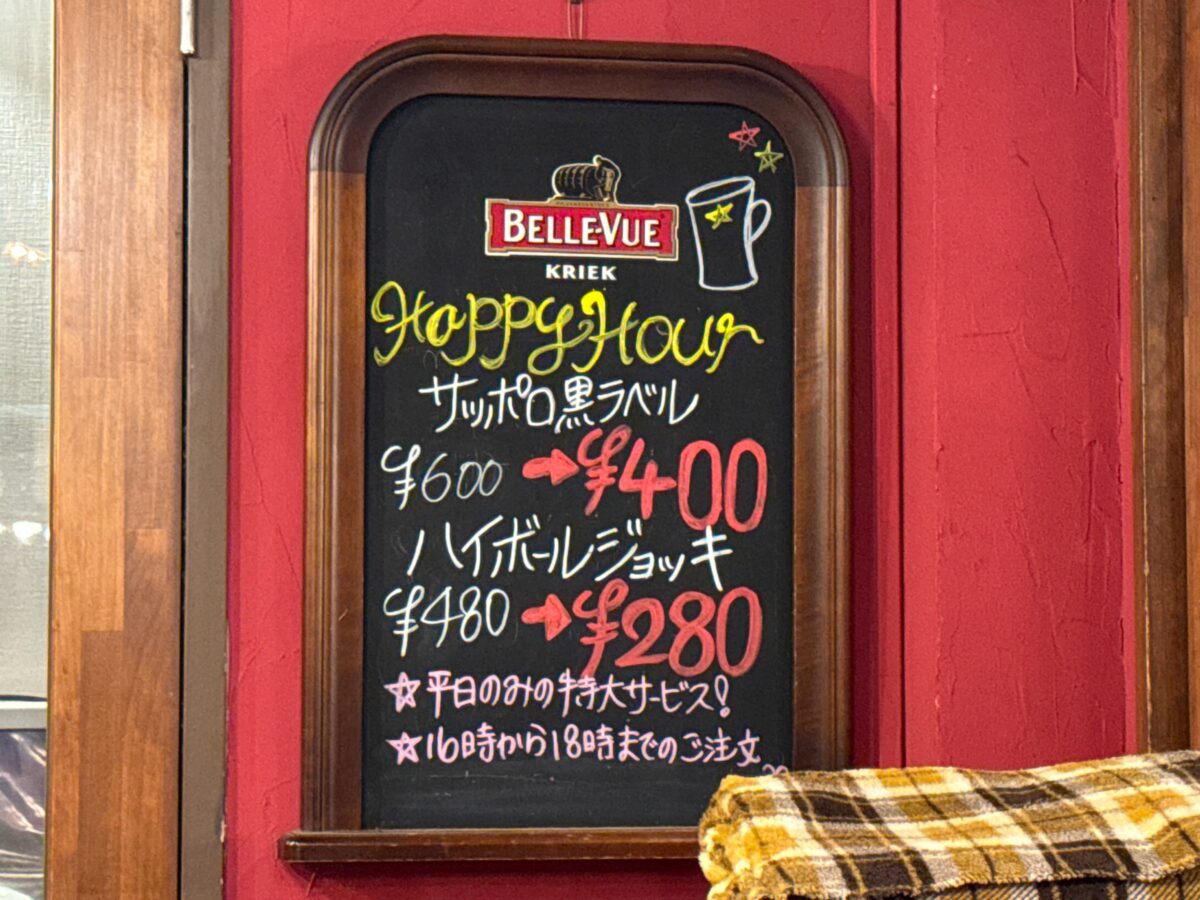 BELLE-VUE
KRIEK
Happy Hour
サッポロ黒ラベル
¥600 → ¥400
ハイボールジョッキ
¥480 → ¥280
☆平日のみの特大サービス!
☆16時から18時までのご注文